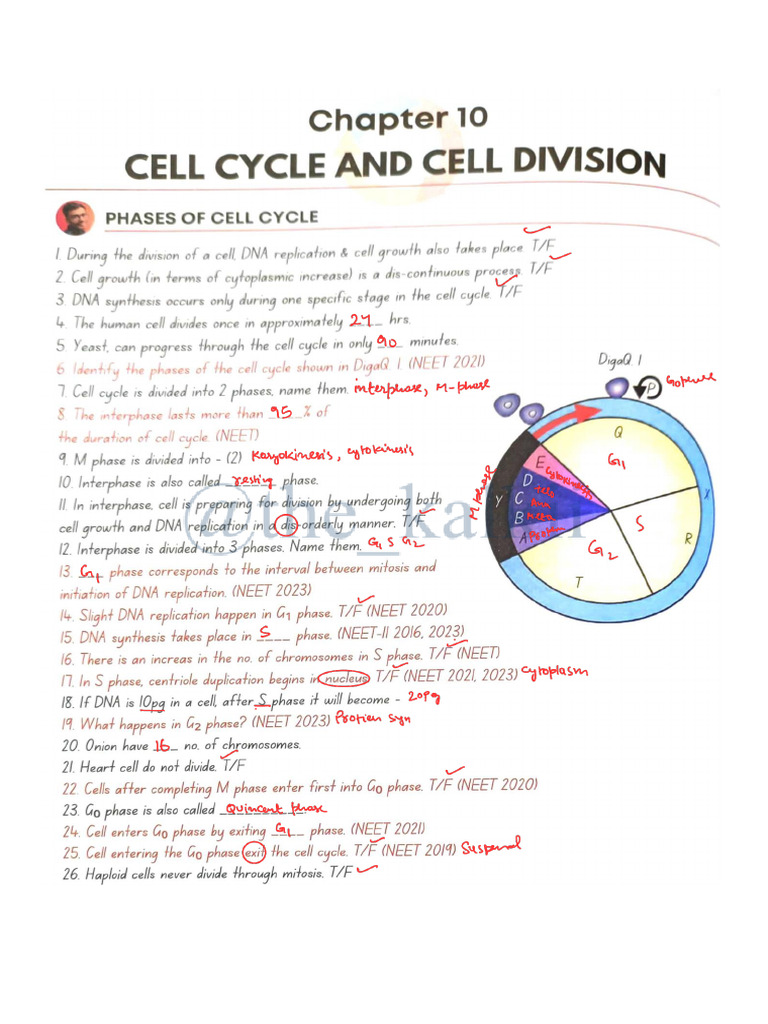 Chapter 10
CELL CYCLE AND CELL DIVISION
PHASES OF CELL CYCLE
1. During the division of a cell, DNA replication & cell growth also takes place. T/F
2. Cell growth (in terms of cytoplasmic increase) is a dis-continuous process. T/F
3. DNA synthesis occurs only during one specific stage in the cell cycle. T/F
4. The human cell divides once in approximately 24 hrs.
5. Yeast, can progress through the cell cycle in only 90 minutes.
6. Identify the phases of the cell cycle shown in DigaQ 1. (NEET 2021)
7. Cell cycle is divided into 2 phases, name them. interphase, M-phase
8. The interphase lasts more than 95 % of
the duration of cell cycle. (NEET)
9. M phase is divided into - (2) Karyokinesis, cytokinesis
10. Interphase is also called resting phase.
11. In interphase, cell is preparing for division by undergoing both
cell growth and DNA replication in a dis-orderly manner. T/F
12. Interphase is divided into 3 phases. Name them. G1 S G2
13. G1 phase corresponds to the interval between mitosis and
initiation of DNA replication. (NEET 2023)
14. Slight DNA replication happen in G1 phase. T/F (NEET 2020)
15. DNA synthesis takes place in S phase. (NEET-II 2016, 2023)
16. There is an increas in the no. of chromosomes in S phase. T/F (NEET)
17. In S phase, centriole duplication begins in nucleus. T/F (NEET 2021, 2023) Cytoplasm
18. If DNA is 10pg in a cell, after S phase it will become - 20pg
19. What happens in G2 phase? (NEET 2023) Protien syn
20. Onion have 16 no. of chromosomes.
21. Heart cell do not divide. T/F
22. Cells after completing M phase enter first into G0 phase. T/F (NEET 2020)
23. G0 phase is also called Quincent phase
24. Cell enters G0 phase by exiting G1 phase. (NEET 2021)
25. Cell entering the G0 phase exit the cell cycle. T/F (NEET 2019)
26. Haploid cells never divide through mitosis. T/F
DigaQ. 1
P
Q
G1
E Cytokinesis
D Telo
C Ana
B Meta
A
M phase
Y
X
S
R
G2
T
@the_